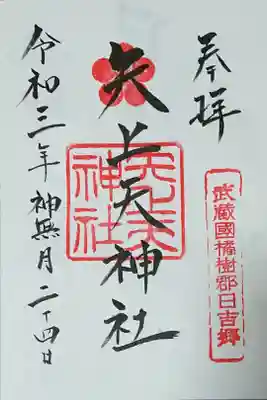 奉拝
武蔵國橘樹郡日吉郷
矢上天神社
矢上天神社
令和三年神無月二十四日